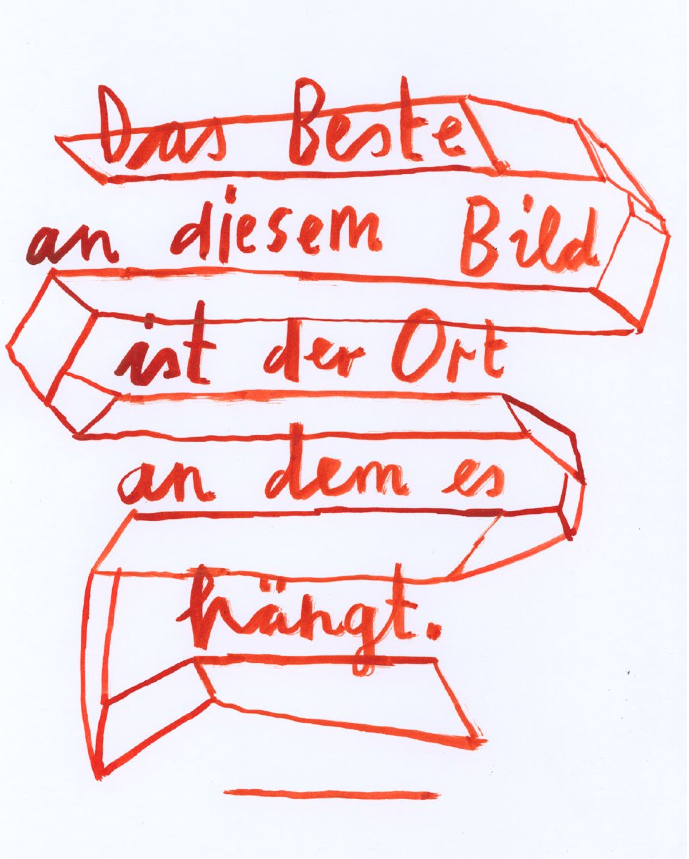 Das Beste
an diesem Bild
ist der Ort
an dem es
hängt.